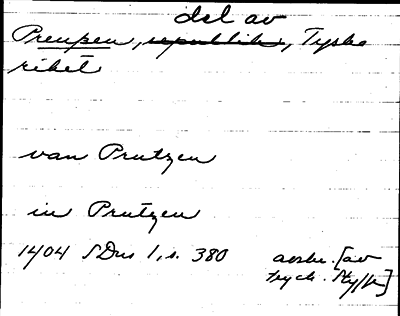 del av
Preussen, republik, Tyska
riket
van Prutzen
in Prutzen
1404 SDns 1, s. 380 avskr. [av
tryck. Styffe]